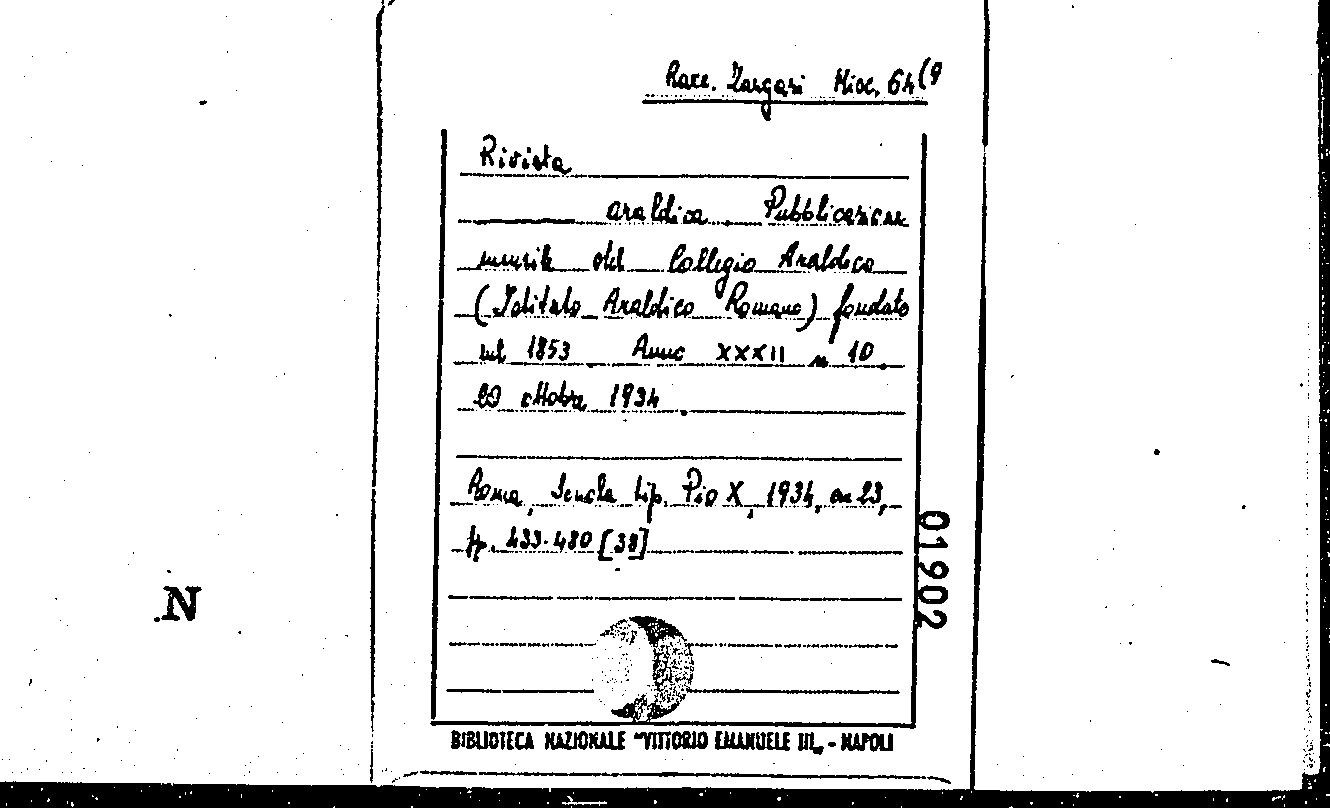 Racc. Zangari Misc. 64(9
Rivista
araldica. Pubblicazione
mensile del Collegio Araldico
(Istituto Araldico Romano) fondato
nel 1853. Anno XXXII n 10.
20 ottobre 1934.
Roma, Scuola tip. Pio X, 1934, cm 23,
pp. 433-480 [38]
01902
N
BIBLIOTECA NAZIONALE "VITTORIO EMANUELE III„ - NAPOLI